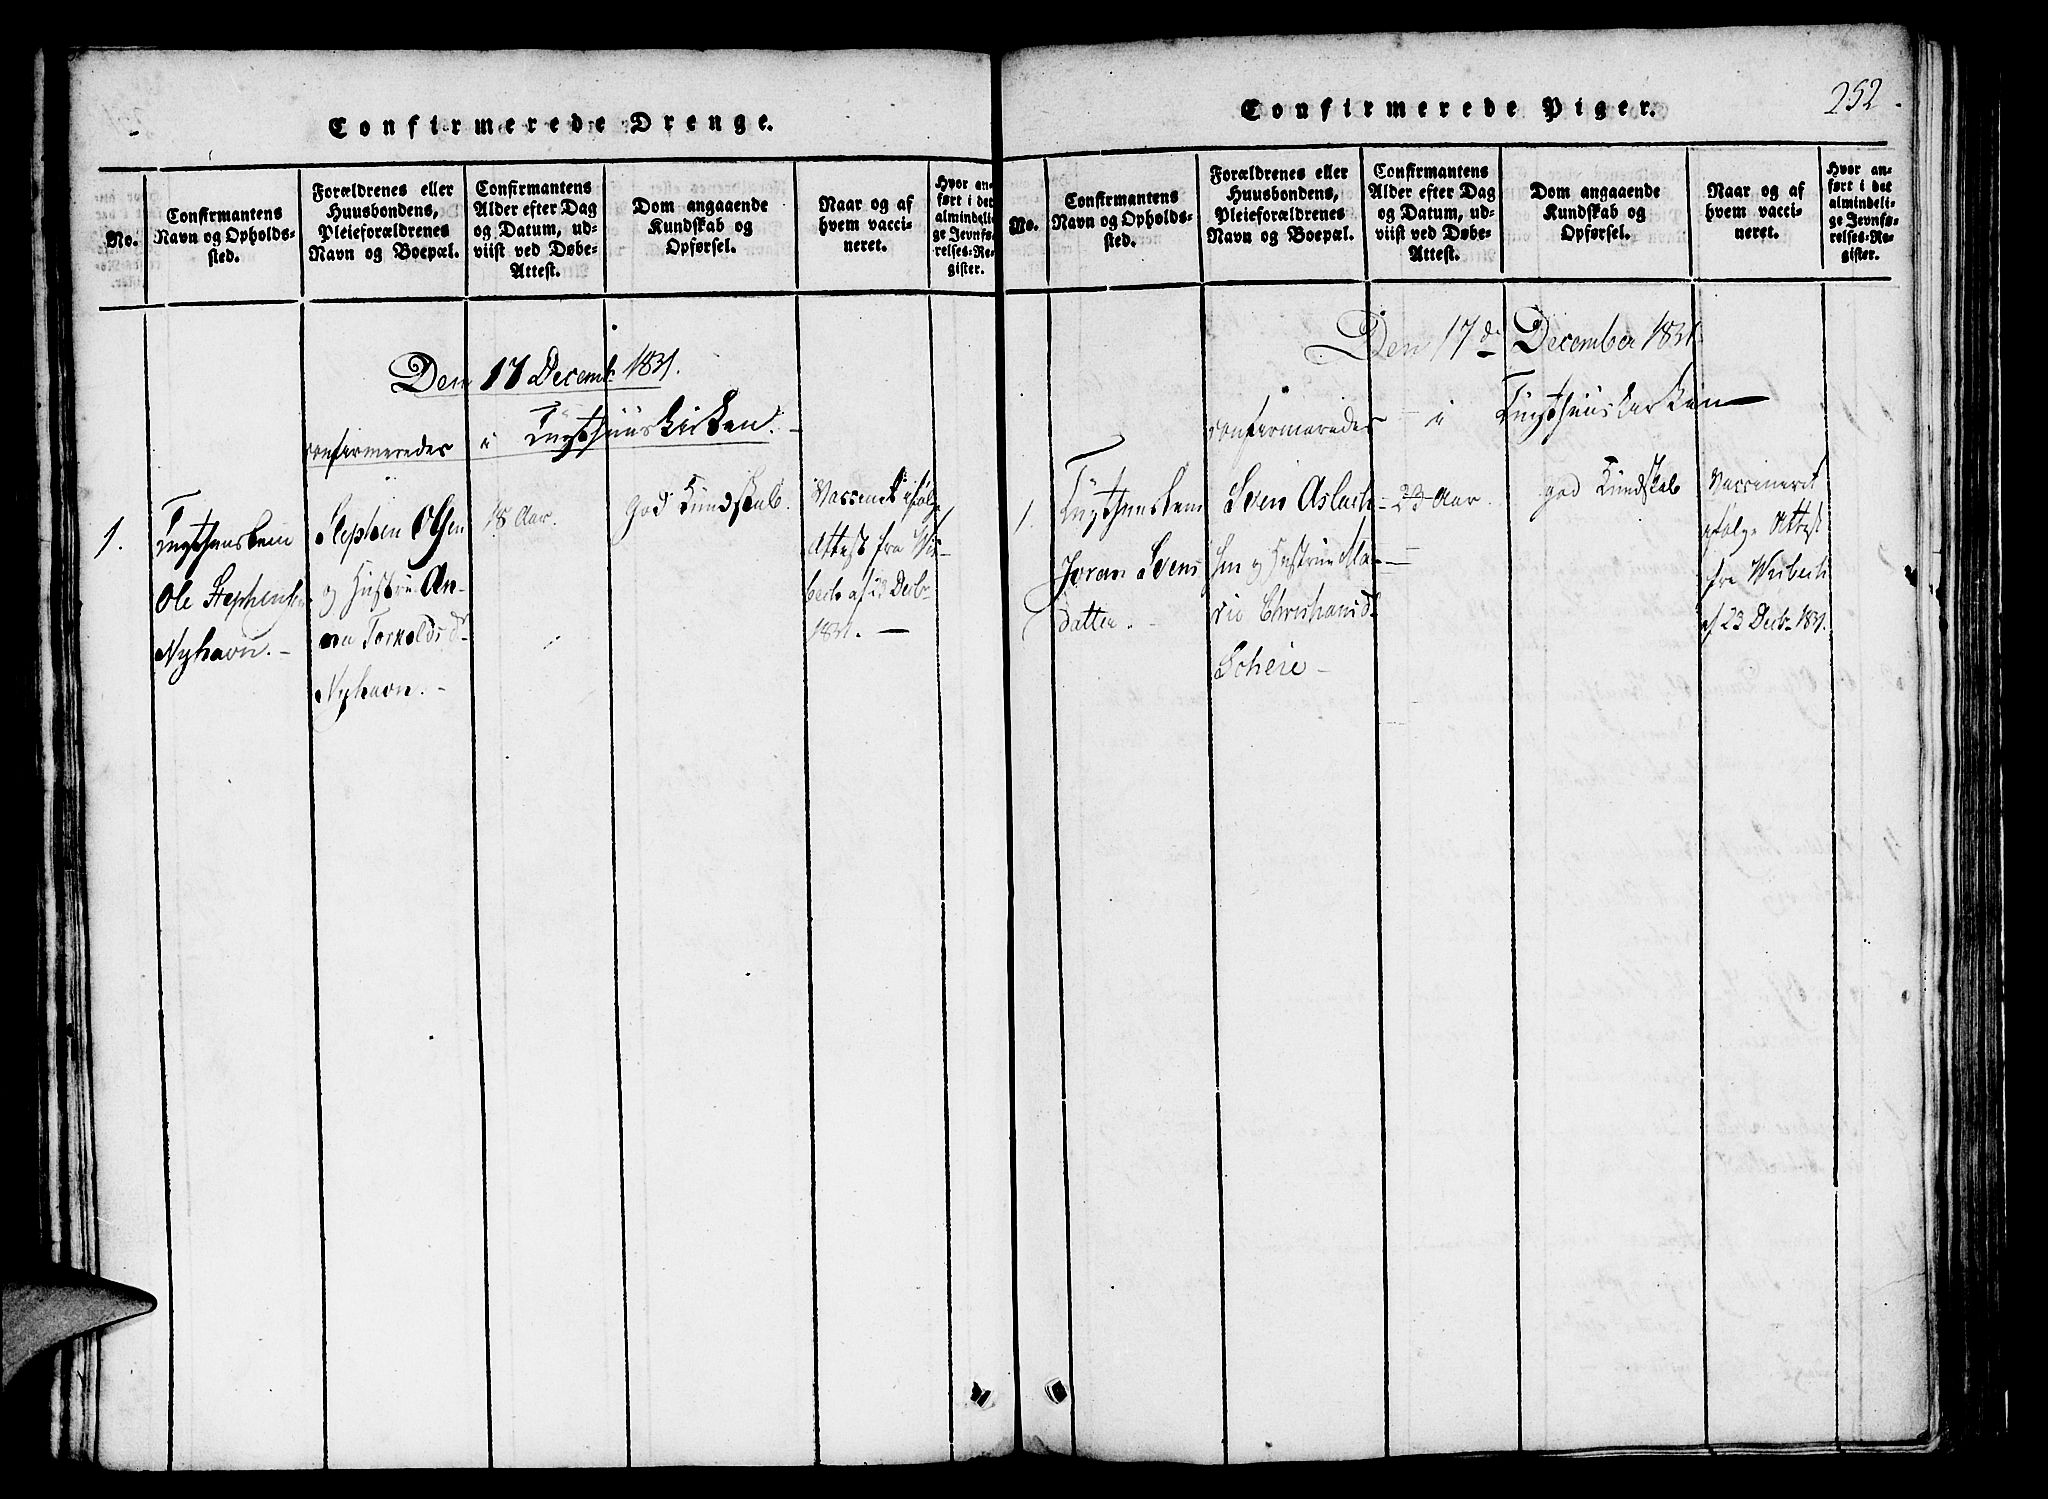 Confirmerede Drenge.
No.
Confirmantens
Navn og Opholds-
sted.
Forældrenes eller
Huusbondens,
Pleieforældrenes
Navn og Boepæl.
Confirmantens
Alder efter Dag
og Datum, ud-
viist ved Døbe-
Attest.
Dom angaaende
Kundskab og
Opførsel.
Naar og af
hvem vacci-
neret.
Hvor an-
ført i det
almindeli-
ge Jevnfø-
relses-Re-
gister.
Den 17 Decemb. 1831.
confirmeredes i Tugthuuskirken.
1.
Tugthuuslem
Ole Stephens
Nyhavn.
Stephen Olsen
og Hustru An-
na Torkelds d.
Nyhavn.
18 Aar.
God Kundskab.
Vaccineret ifølge
Attest fra Wis-
bech af 23 Decbr
1831.
Confirmerede Piger.
252
No.
Confirmantens
Navn og Opholds-
sted.
Forældrenes eller
Huusbondens,
Pleieforældrenes
Navn og Boepæl.
Confirmantens
Alder efter Dag
og Datum, ud-
viist ved Døbe-
Attest.
Dom angaaende
Kundskab og
Opførsel.
Naar og af
hvem vacci-
neret.
Hvor an-
ført i det
almindeli-
ge Jevnfø-
relses-Re-
gister.
Den 17de December 1831
confirmeredes i Tugthuuskirken
1.
Tugthuuslem
Joren Svens
datter.
Sven Aslach-
sen og Hustrue Ma-
rie Christians d.
Scheie
23 Aar.
god Kundskab
Vaccineret
ifølge Attest
fra Wisbech
af 23 Decbr 1831.